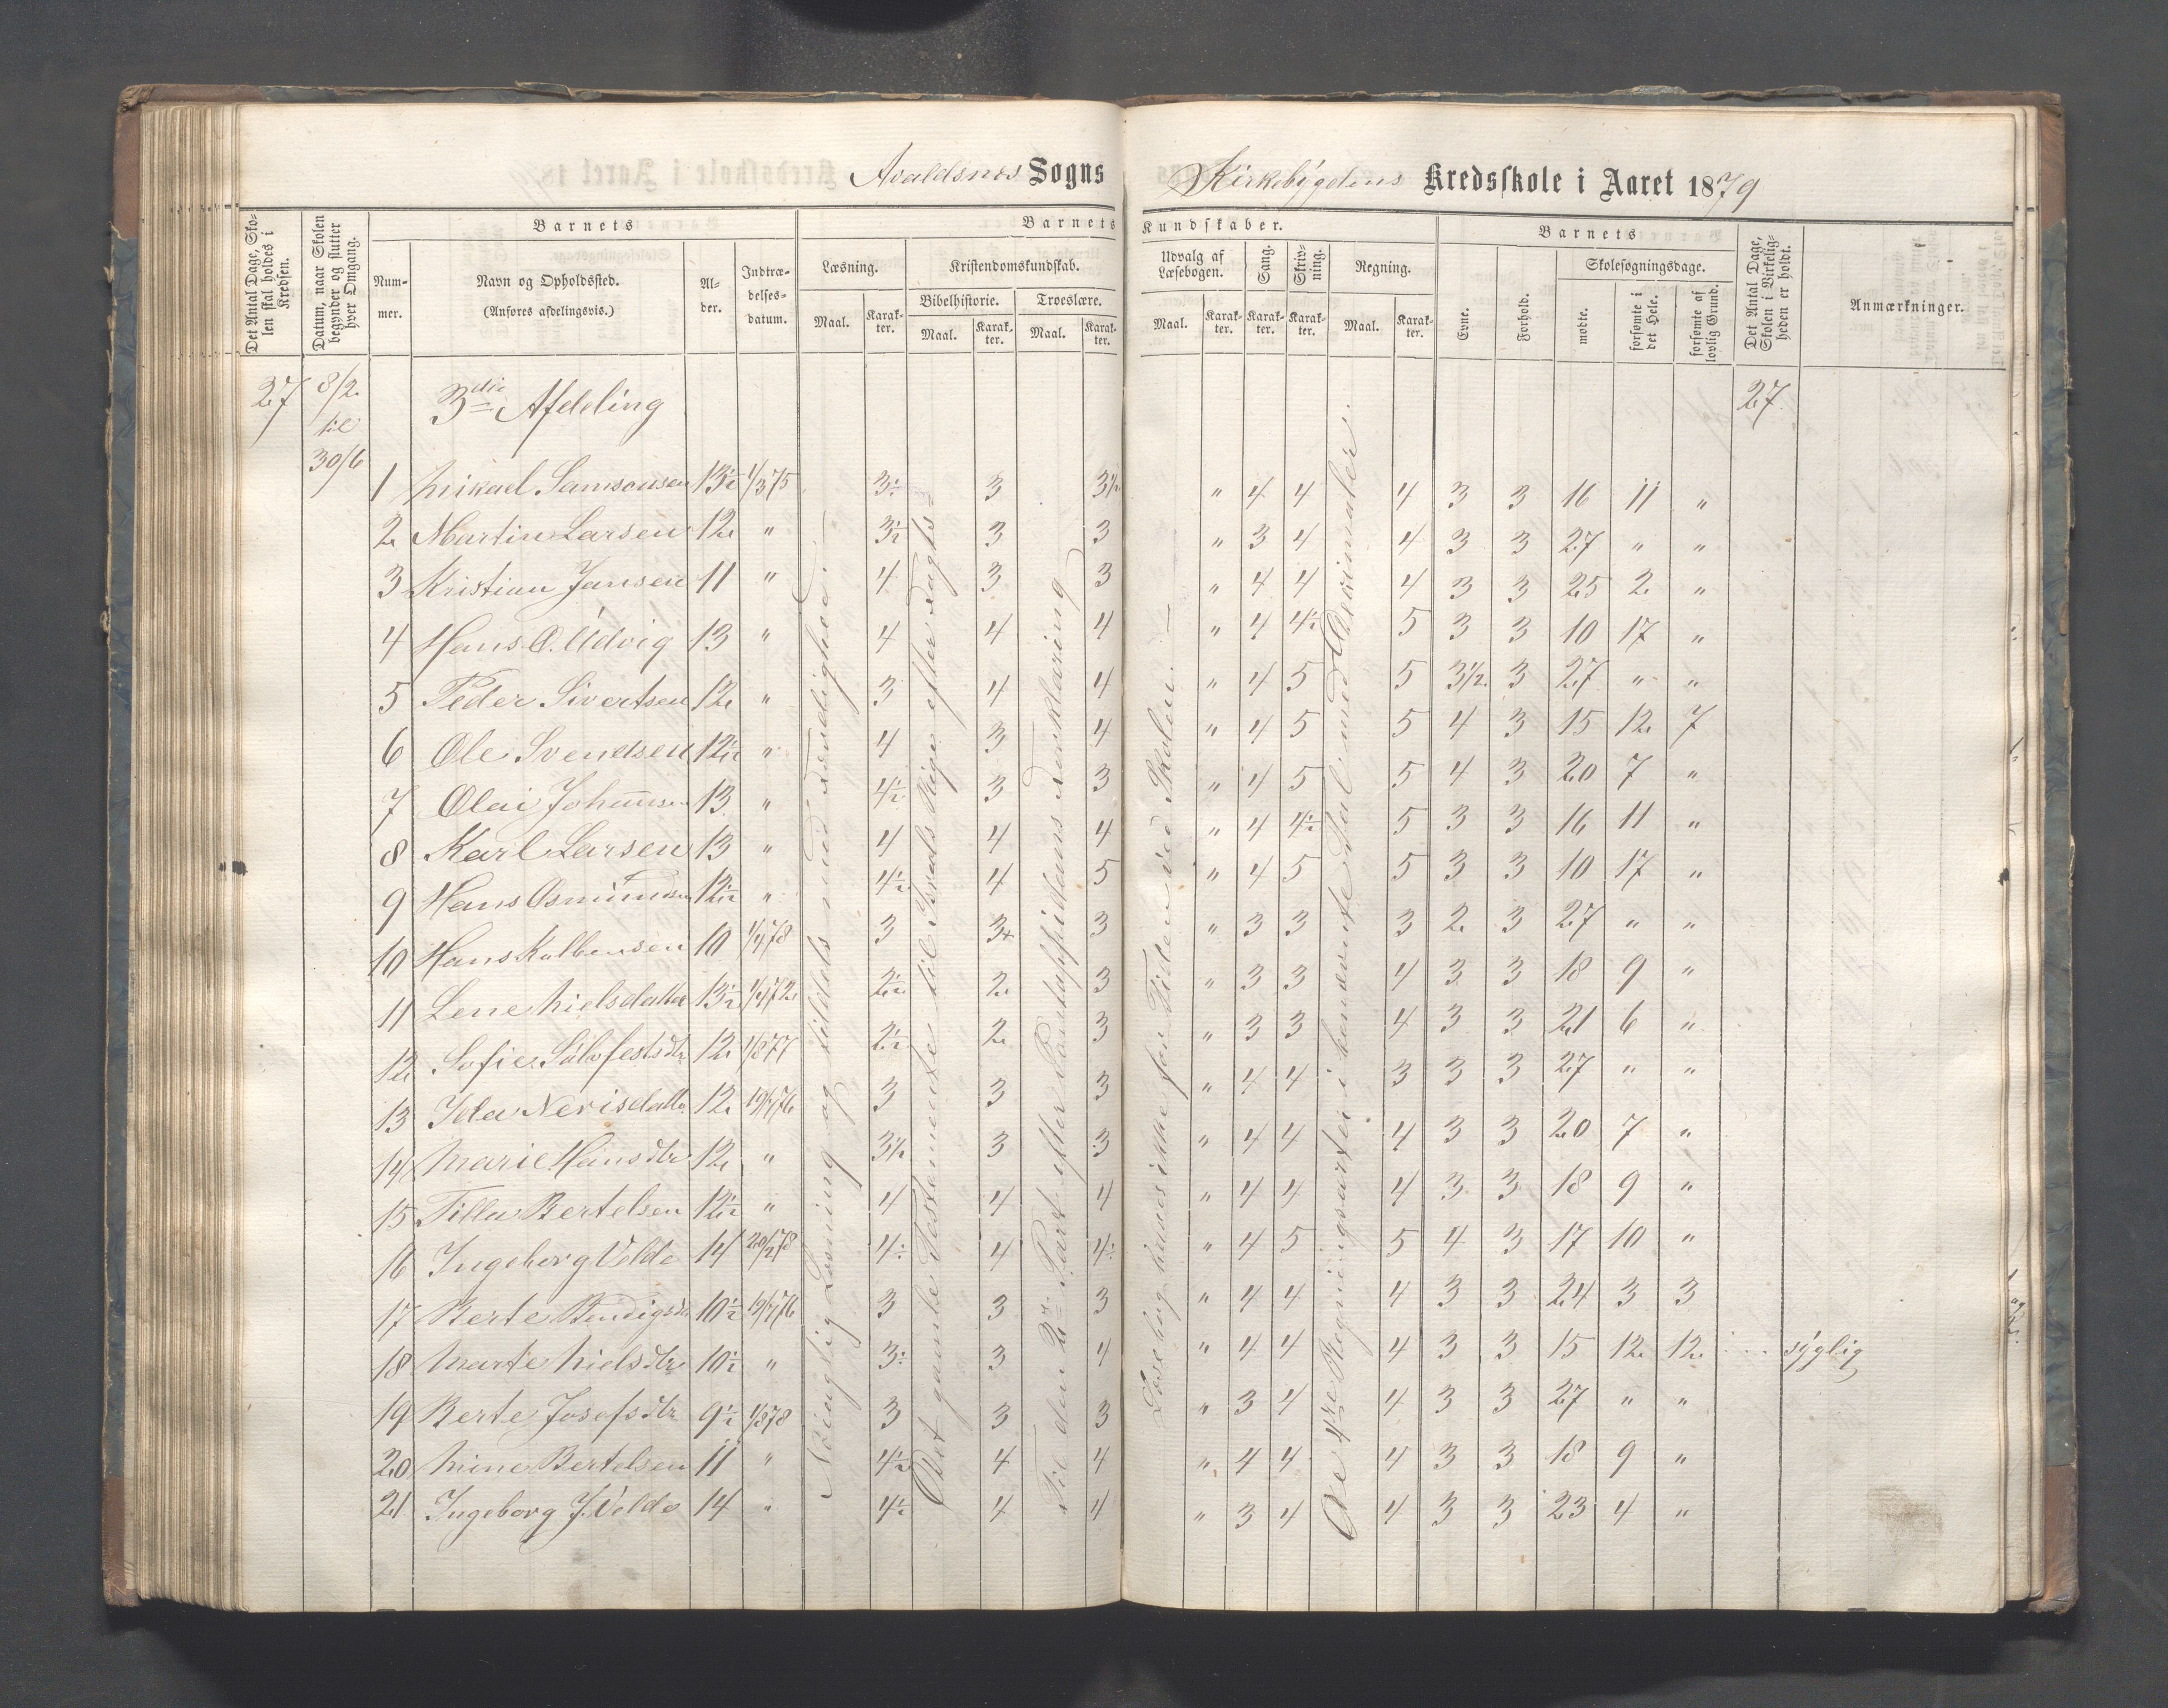 Avaldsnes Sogns Kirkebygdens Kredsskole i Aaret 1879
Det Antal Dage, Skolen skal holdes i Kredsen.
Datum, naar Skolen begynder og slutter hver Omgang.
Barnets
Nummer.
Navn og Opholdssted.
(Anføres afdelingsvis.)
Alder.
Indtrædelsesdatum.
Barnets Kundskaber.
Læsning.
Maal.
Karakter.
Kristendomskundskab.
Bibelhistorie.
Maal.
Karakter.
Troeslære.
Maal.
Karakter.
Udvalg af Læsebogen.
Maal.
Karakter.
Sang.
Karakter.
Skrivning.
Karakter.
Regning.
Maal.
Karakter.
Barnets
Evne.
Forhold.
Skolesøgningsdage.
mødte.
forsømte i det Hele.
forsømte af lovlig Grund.
Det Antal Dage, Skolen i Virkeligheden er holdt.
Anmærkninger.
27 8/2 til 30/6 3die Afdeling 27
1 Mikael Samsonsen 13½ 1/3 75 3½ 3 3½ " 4 4 4 3 3 16 11 "
2 Martin Larsen 12 " 3½ 3 3 " 3 4 4 3 3 27 " "
3 Kristian Jansen 11 " 4 3 3 " 4 4 4 3 3 25 2 "
4 Hans O. Udvig 13 " 4 4 4 " 4 4½ 5 3 3 10 17 "
5 Peder Sivertsen 12 " 3 4 4 " 4 5 5 3½ 3 27 " "
6 Ole Svendsen 12½ " 4 3 4 " 4 5 5 4 3 15 12 7
7 Olai Johannsen 13 " 4½ 3 3 " 4 5 5 4 3 20 7 "
8 Karl Larsen 13 " 4 4 4 " 4 4½ 5 3 3 16 11 "
9 Hans Osmundsen 12½ " 4½ 4 5 " 4 5 5 3 3 10 17 "
10 Hans Kolbensen 10 1/4 78 3 3+ 3 " 3 3 3 2 3 27 " "
11 Lene Nielsdatter 13½ 1/4 72 2½ 2 3 " 3 3 4 3 3 18 9 "
12 Sofie Sålofestsdtr 12 1/8 77 2½ 2 3 " 3 3 4 3 3 21 6 "
13 Ida Nerisdatter 12 19/4 76 3 3 3 " 4 4 3 3 3 27 " "
14 Marie Hansdtr 12 " 3½ 3 3 " 4 4 4 3 3 20 7 "
15 Tilla Bertelsen 12½ " 4 4 4 " 4 4 4 3 3 18 9 "
16 Ingeborg Velde 14 20/2 78 4½ 4 4½ " 4 5 5 4 3 17 10 "
17 Berte Bendigsdtr 10½ 19/4 76 3 3 3 " 4 4 4 3 3 24 3 3
18 Marte Nielsdtr 10½ " 3½ 3 4 " 4 4 4 3 3 15 12 12 syglig
19 Berte Josefsdtr 9½ 1/8 78 3 3 3 " 3 4 4 3 3 27 " "
20 Mine Bertelsen 11 " 4½ 4 4 " 4 4 4 3 3 18 9 "
21 Ingeborg J. Velde 14 " 4½ 4 4 " 3 4 4 3 3 23 4 "
Nöiagtig Læsning og tildels med Færdighed.
Det gamle Testamente til Israels Rige efter Vogts
Til den 2den Part efter Pontoppidans Forklaring
Læsebog bruges ikke for Tiden ved Skolen.
De 4re Regningsarter i benævnte Tal med Decimaler.